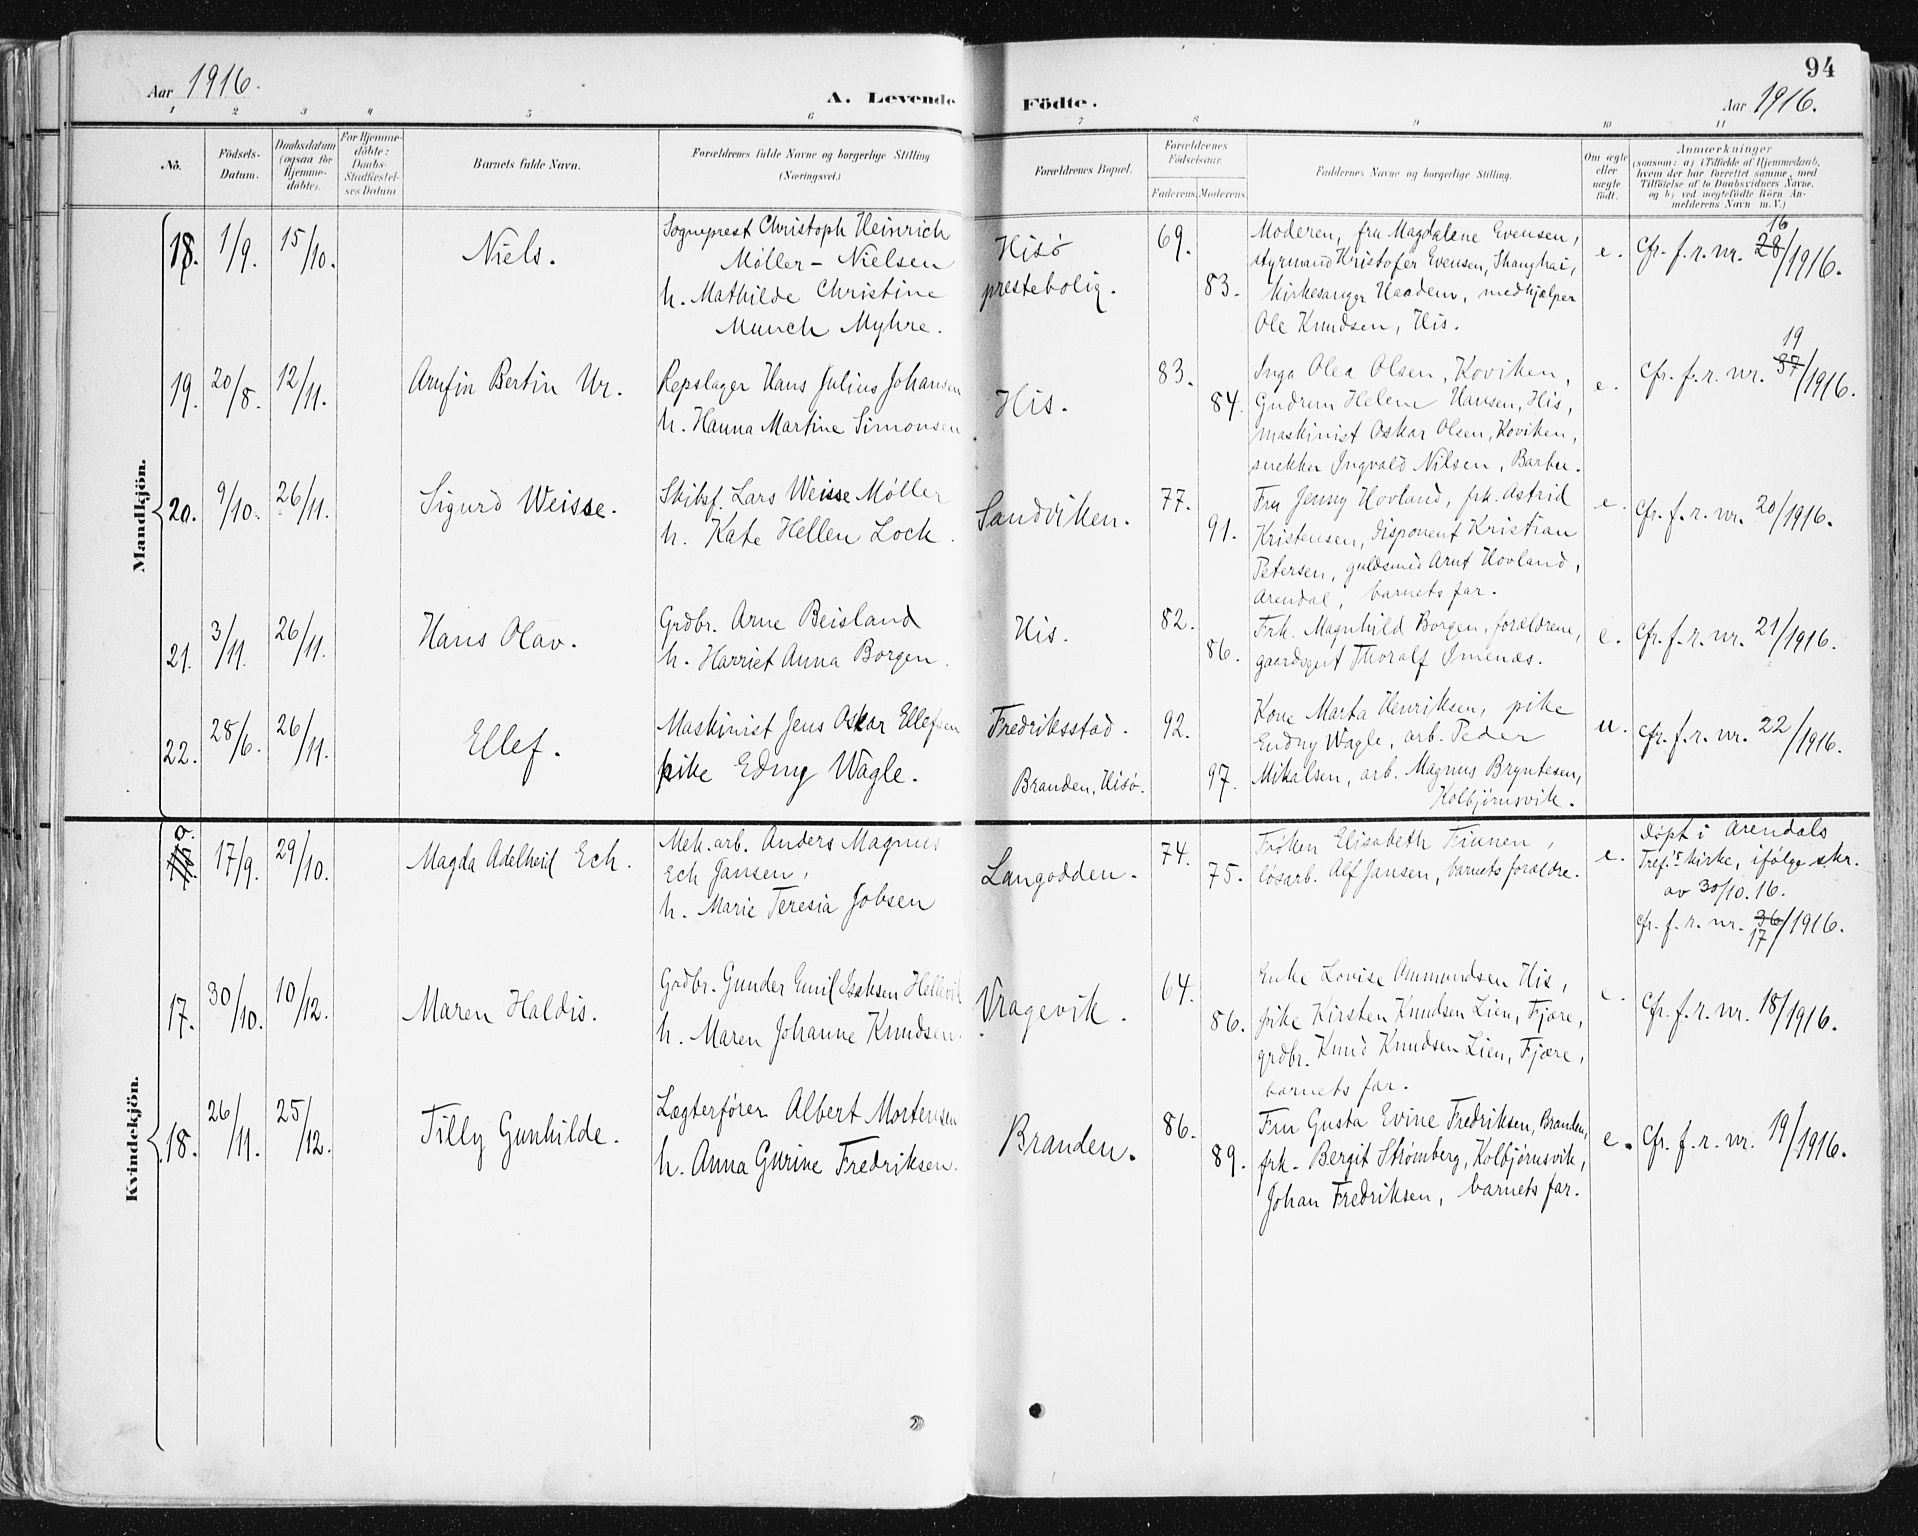 94
Aar 1916.
A. Levende Födte.
Aar 1916.
1 2 3 4 5 6 7 8 9 10 11
No.
Födsels-
Datum.
Daabsdatum
(ogsaa for
Hjemme-
döbte).
For Hjemme-
döbte:
Daabs-
Stadfæstel-
ses Datum
Barnets fulde Navn.
Forældrenes fulde Navne og borgerlige Stilling
(Næringsvei.)
Forældrenes Bopæl.
Forældrenes
Födselsaar.
Faderens. Moderens.
Faddernes Navne og borgerlige Stilling.
Om ægte
eller
uægte
födt.
Anmærkninger
(saasom: a) i Tilfælde af Hjemmedaab,
hvem der har forrettet samme, med
Tilföielse af to Daabsvidners Navne,
og b) ved uægtefödte Börn An-
melderens Navn m. V.)
Mandkjön.
18. 1/9. 15/10. Niels.
Sogneprest Christoph Heinrich
Møller-Nielsen
h. Mathilde Christine
Munch Myhre.
Hisö
prestebolig.
69.
83.
Moderen, fru Magdalene Evensen,
styrmand Kristofer Evensen, Shanghai,
Kirkesanger Haadem, medhjælper
Ole Knudsen, His.
e. Cfr. f. r. nr. 28/1916.
16
19. 20/8. 12/11. Arnfin Bertin Ur.
Repslager Hans Julius Johansen
h. Hanna Martine Simonsen
His.
83.
84.
Inga Olea Olsen, Koviken,
Gudrun Helene Hansen, His,
maskinist Oskar Olsen, Koviken,
snekker Ingvald Nilsen, Barbu.
e. Cfr. f. r. nr. 37/1916.
19
20. 9/10. 26/11. Sigurd Weisse.
Skibsf. Lars Weisse Møller
h. Kate Hellen Lock.
Sandviken.
77.
91.
Fru Jenny Hovland, frk. Astrid
Kristensen, disponent Kristian
Petersen, guldsmed Arnt Hovland,
Arendal, barnets far.
e. Cfr. f. r. nr. 20/1916.
21. 3/11. 26/11. Hans Olav.
Grdbr. Arne Beisland
h. Harriet Anna Borgen.
His.
82.
86.
Frk. Magnhild Borgen, forældrene,
gaardsgut Thoralf Imenæs.
e. Cfr. f. r. nr. 21/1916.
22. 28/6. 26/11. Ellef.
Maskinist Jens Oskar Ellefsen
pike Edny Wagle.
Fredriksstad.
Branden, Hisö.
92.
97.
Kone Marta Henriksen, pike
Endny Wagle, arb. Peder
Mikalsen, arb. Magnus Bryntesen,
Kolbjørnsvik.
u. Cfr. f. r. nr. 22/1916.
Kvindekjön.
17/9. 29/10. Magda Adelheid Eck.
Mek. arb. Anders Magnus
Eck Jansen,
h. Marie Teresia Jobsen
Langodden.
74.
75.
Frøken Elisabeth Finnen,
løsarb. Alf Jansen, barnets forældre.
e.
Døpt i Arendals
Tref.s Kirke, ifølge skr.
av 30/10.16.
Cfr. f. r. nr. 36/1916.
17
17. 30/10. 10/12. Maren Haldis.
Grdbr. Gunder Emil Isaksen Hellevik
h. Maren Johanne Knudsen.
Vragevik.
64.
86.
Enke Lovise Ommundsen His,
pike Kirsten Knudsen Lien, Fjære,
grdbr. Knud Knudsen Lien, Fjære,
barnets far.
e. Cfr. f. r. nr. 18/1916.
18. 26/11. 25/12. Tilly Gunhilde.
Lægterfører Albert Mortensen
h. Anna Gurine Fredriksen.
Branden.
86.
89.
Fru Gusta Evine Fredriksen, Branden,
frk. Bergit Strømberg, Kolbjørnsvik,
Johan Fredriksen, barnets far.
e. Cfr. f. r. nr. 19/1916.